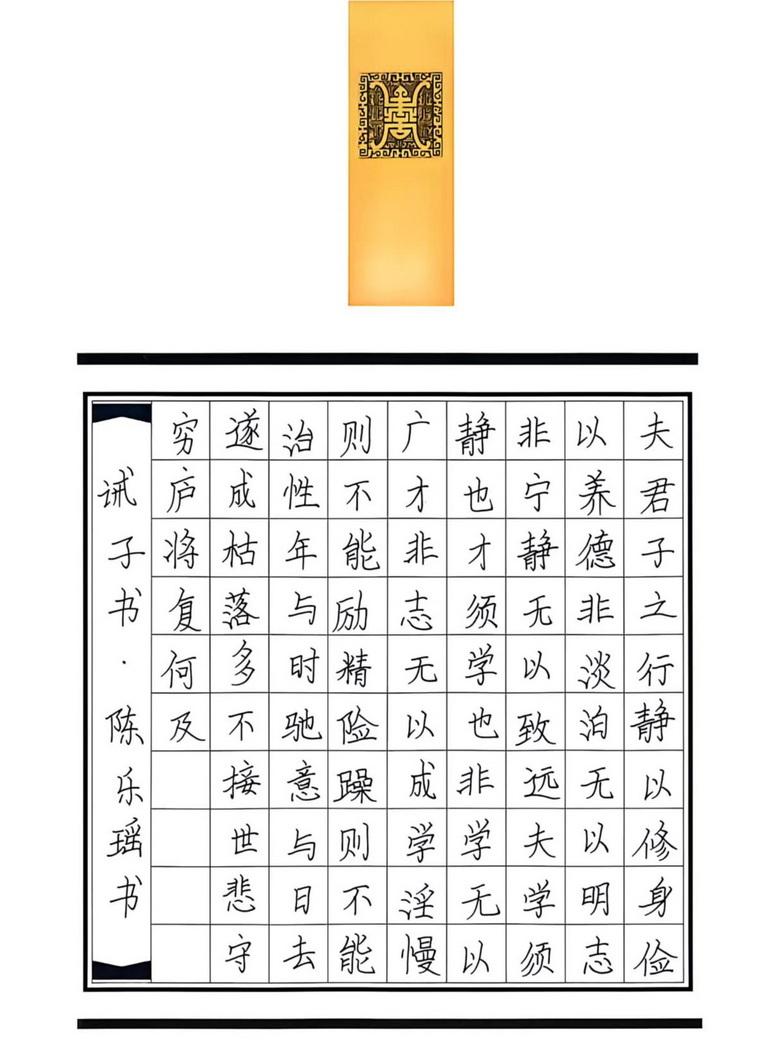 夫君子之行静以修身俭
以养德非淡泊无以明志
非宁静无以致远夫学须
静也才须学也非学无以
广才非志无以成学淫慢
则不能励精险躁则不能
治性年与时驰意与日去
遂成枯落多不接世悲守
穷庐将复何及
诫子书·陈乐瑶书